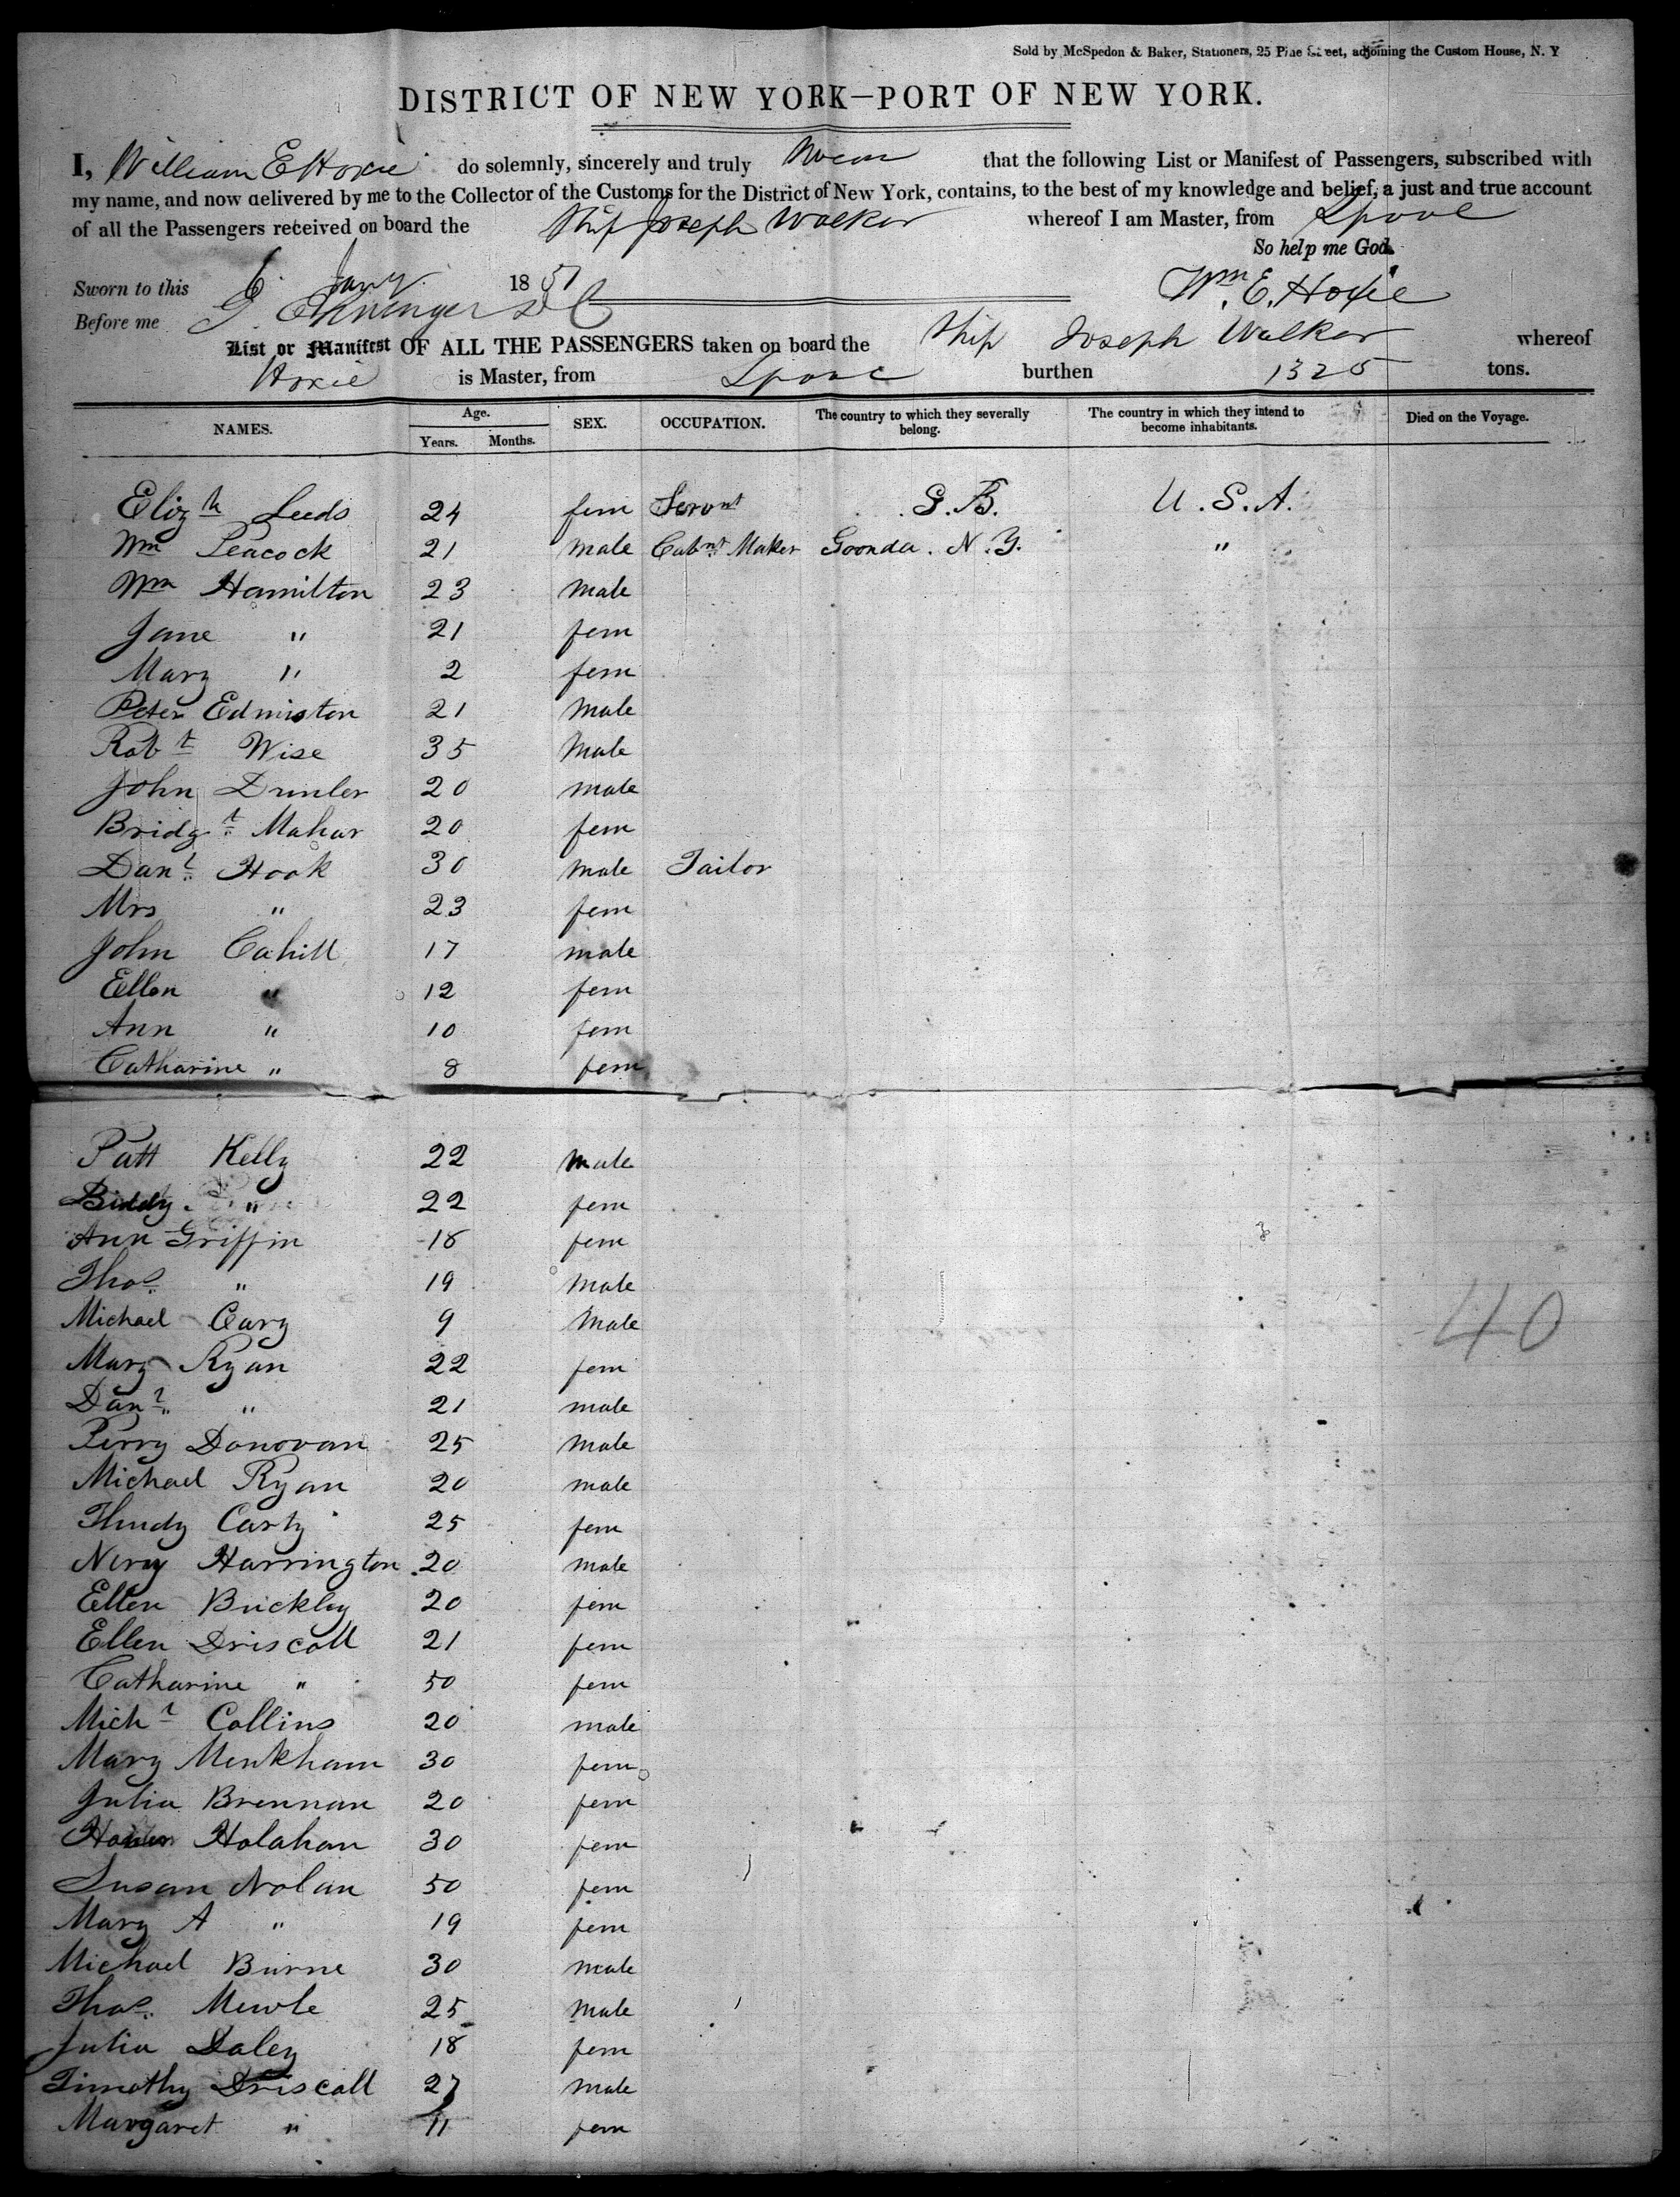 Sold by McSpedon & Baker, Stationers, 25 Pine Street, adjoining the Custom House, N. Y
DISTRICT OF NEW YORK—PORT OF NEW YORK.
I, William E Hoxie do solemnly, sincerely and truly swear that the following List or Manifest of Passengers, subscribed with
my name, and now delivered by me to the Collector of the Customs for the District of New York, contains, to the best of my knowledge and belief, a just and true account
of all the Passengers received on board the Ship Joseph Walker whereof I am Master, from Lpool
So help me God.
Sworn to this 6 Jany 1851 Wm. E. Hoxie
Before me G.
List or Manifest OF ALL THE PASSENGERS taken on board the Ship Joseph Walker whereof
Hoxie is Master, from Lpool burthen 1325 tons.
NAMES. Age. Years. Months. SEX. OCCUPATION. The country to which they severally belong. The country in which they intend to become inhabitants. Died on the Voyage.
Elizh Leeds 24 fem Servnt G.B. U.S.A.
Wm Peacock 21 Male Cabnt Maker N.Y. "
Wm Hamilton 23 Male
Jane " 21 fem
Mary " 2 fem
Peter Edmiston 21 Male
Robt Wise 35 Male
John 20 male
Bridgt Mahar 20 fem
Danl Hook 30 Male Tailor
Mrs " 23 fem
John Cahill 17 male
Ellen " 12 fem
Ann " 10 fem
Catharine " 8 fem
Patt Kelly 22 Male
Biddy " 22 fem
Ann Griffin 18 fem
Thos " 19 Male
Michael Cary 9 Male
40
Mary Ryan 22 fem
Danl " 21 male
Perry Donovan 25 Male
Michael Ryan 20 male
Carty 25 fem
Harrington 20 male
Ellen Brickley 20 fem
Ellen Driscoll 21 fem
Catharine " 50 fem
Michl Collins 20 male
Mary Menkham 30 fem
Julia Brennan 20 fem
Holahan 30 fem
Susan Nolan 50 fem
Mary A " 19 fem
Michael Burne 30 male
Thos. 25 Male
Julia Daley 18 fem
Timothy Driscoll 27 Male
Margaret " 11 fem